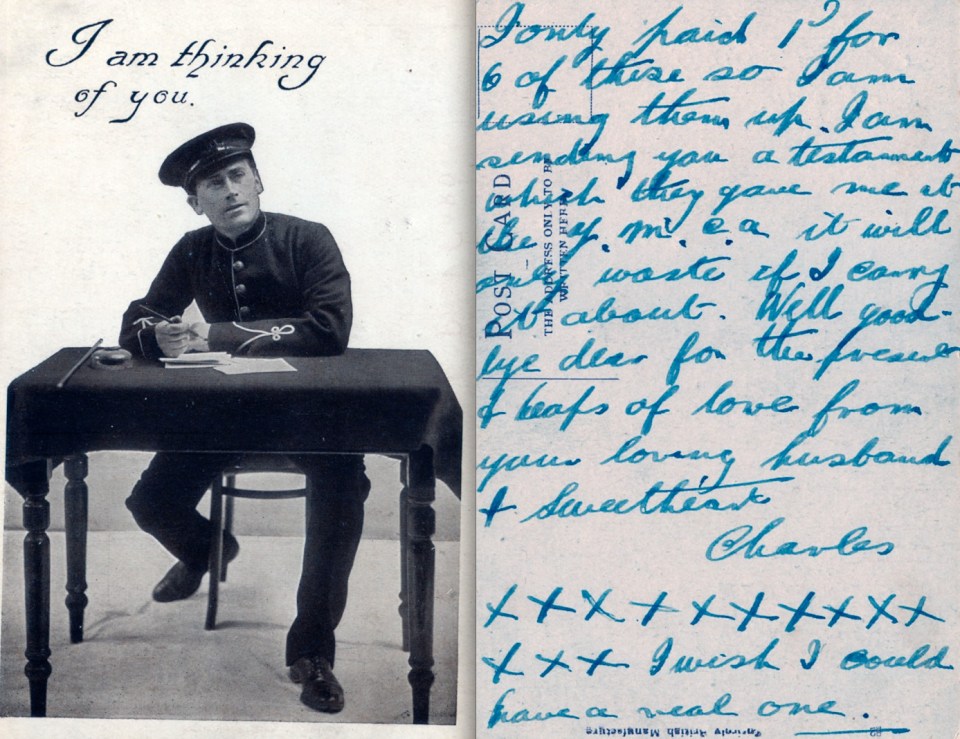 I am thinking
of you.
I only paid 1/ for
6 of these so I am
using them up. I am
sending you a testament
which they gave me at
the Y.M.C.A it will
only waste if I carry
it about. Well good-
bye dear for the present
& heaps of love from
your loving husband
& Sweetheart
Charles
X X X X X X X X X X
X X X I wish I could
have a real one.
POST CARD
THE ADDRESS ONLY TO BE
WRITTEN HERE
British Manufacture